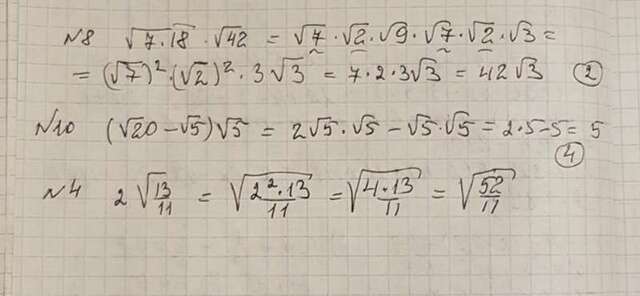 №8 √(7·18) · √42 = √7 · √2 · √9 · √7 · √2 · √3 =
= (√7)² · (√2)² · 3√3 = 7 · 2 · 3√3 = 42√3 ②
№10 (√20 − √5)√5 = 2√5 · √5 − √5 · √5 = 2 · 5 − 5 = 5
④
№4 2√(13/11) = √(2² · 13/11) = √(4 · 13/11) = √(52/11)